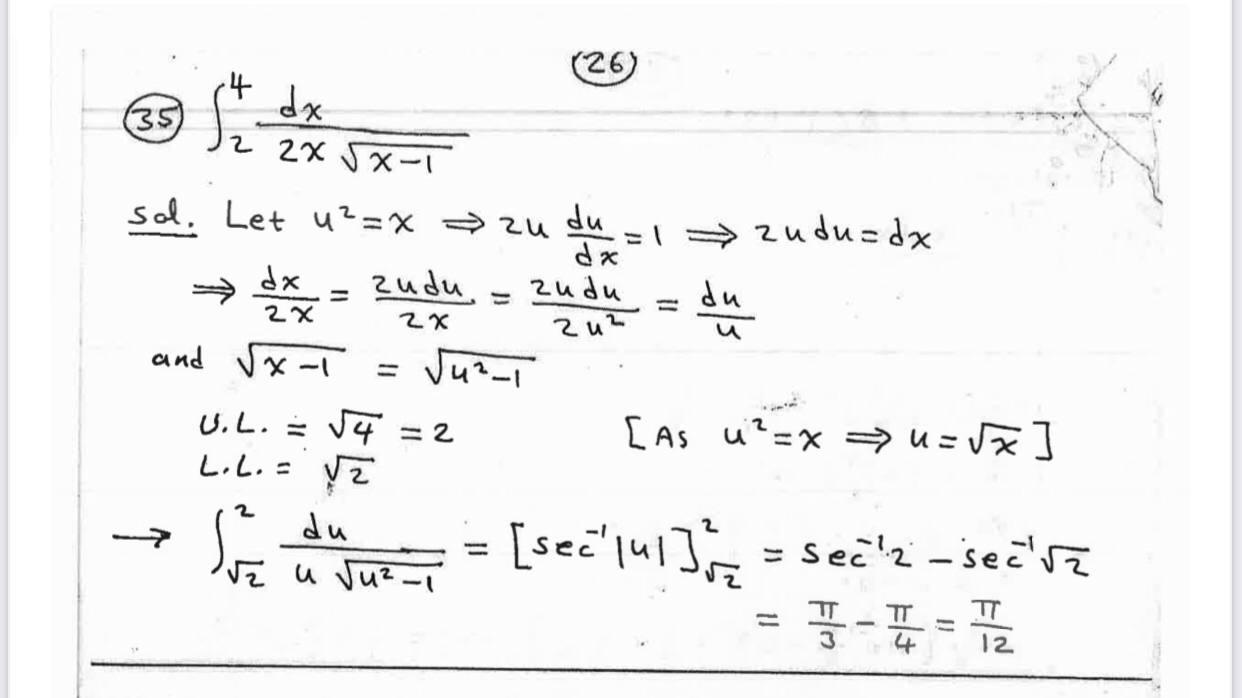 (26)
(35) ∫₂⁴ dx / (2x √(x-1))
sol. Let u² = x ⇒ 2u du/dx = 1 ⇒ 2u du = dx
⇒ dx/2x = 2u du/2x = 2u du/2u² = du/u
and √(x-1) = √(u²-1)
U.L. = √4 = 2 [As u² = x ⇒ u = √x]
L.L. = √2
→ ∫_√2^2 du / (u √(u²-1)) = [sec⁻¹|u|]_√2^2 = sec⁻¹2 - sec⁻¹√2
= π/3 - π/4 = π/12